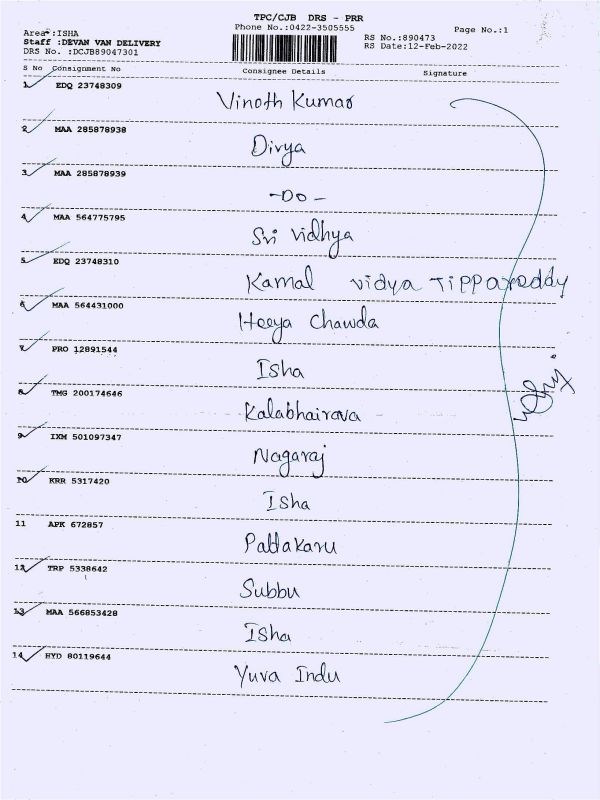 TPC/CJB DRS - PRR
Area :ISHA Phone No.:0422-3505555 Page No.:1
Staff :DEVAN VAN DELIVERY RS No.:890473
DRS No. :DCJB89047301 RS Date:12-Feb-2022
S No Consignment No Consignee Details Signature
1 EDQ 23748309
Vinoth Kumar
2 MAA 285878938
Divya
3 MAA 285878939
-Do-
4 MAA 564775795
Sri Vidhya
5 EDQ 23748310
Kamal Vidya Tippareddy
6 MAA 564431000
Heeya Chawda
7 PRO 12891544
Isha
8 TMG 200174646
Kalabhairava
9 IXM 501097347
Nagaraj
10 KRR 5317420
Isha
11 APK 672857
Pattakaru
12 TRP 5338642
Subbu
13 MAA 566853428
Isha
14 HYD 80119644
Yuva Indu